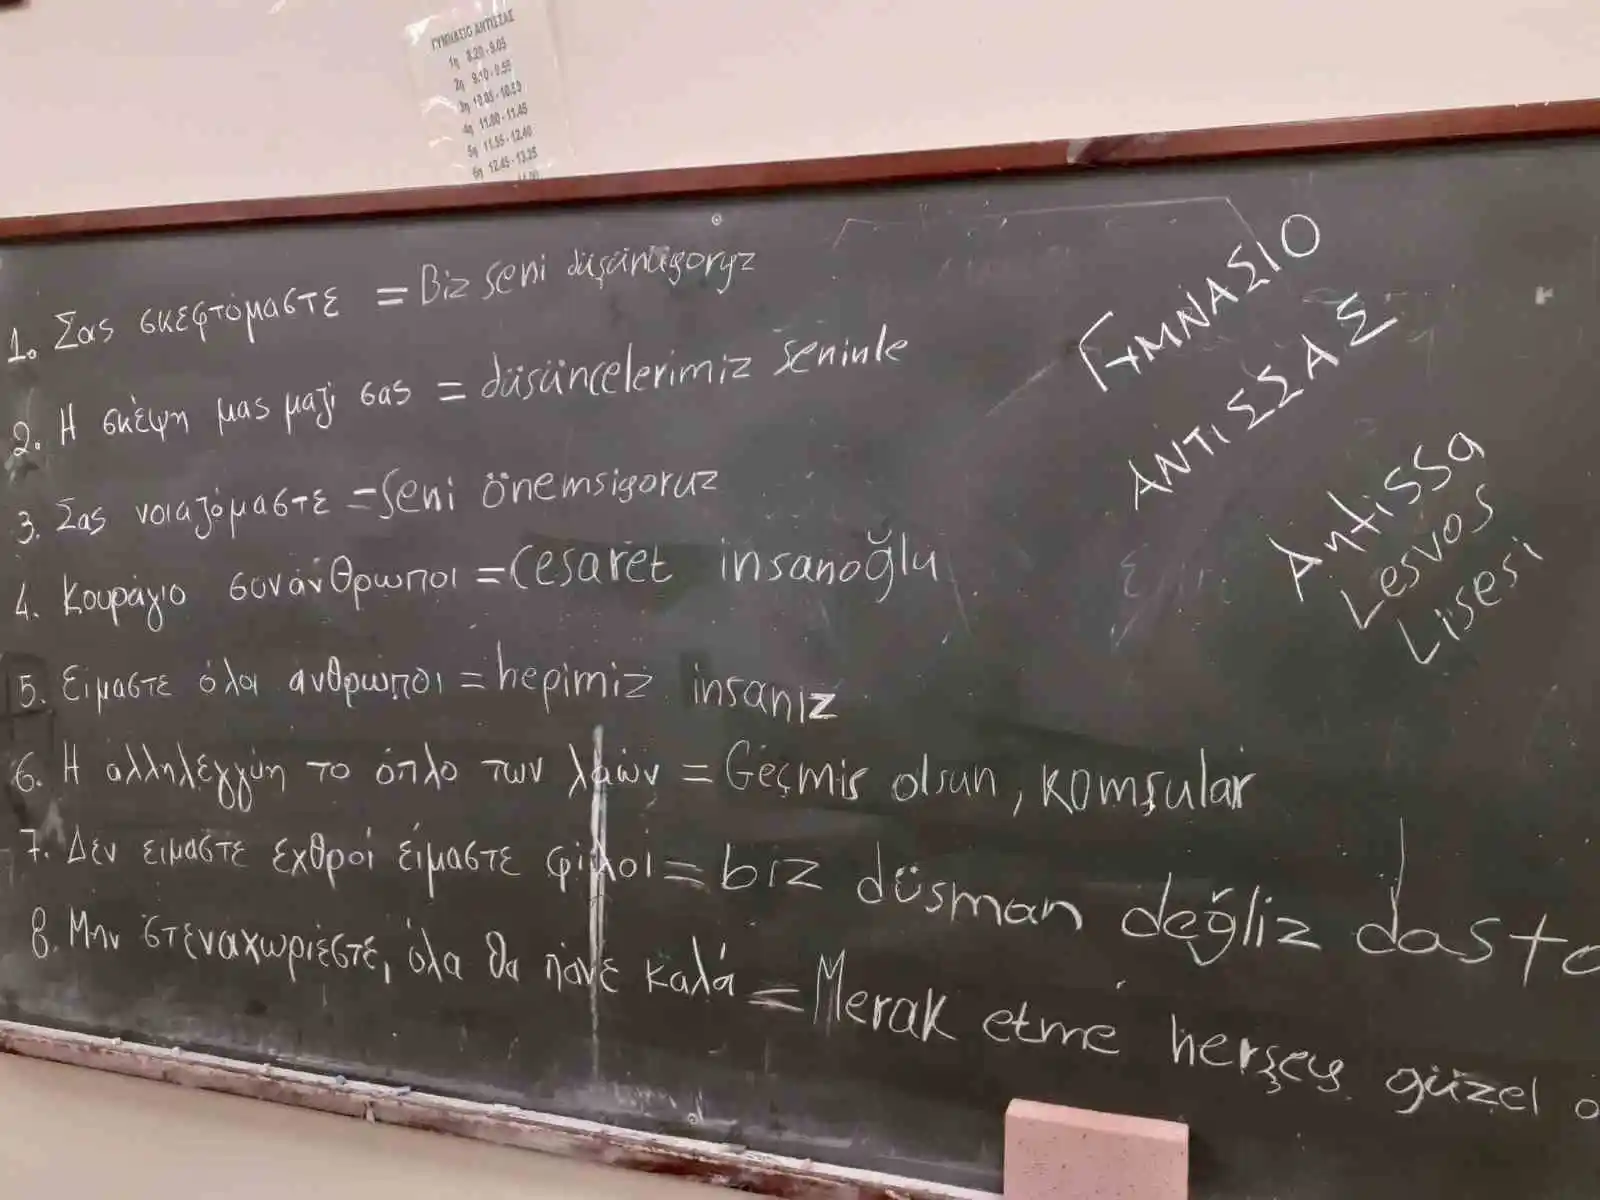 ΓΥΜΝΑΣΙΟ ΑΝΤΙΣΣΑΣ
1η 8.20 - 9.05
2η 9.10 - 9.55
3η 10.05 - 10.50
4η 11.00 - 11.45
5η 11.55 - 12.40
6η 12.45 - 13.25
1. Σας σκεφτόμαστε = Biz seni düşünüyoryz
2. Η σκέψη μας μαζί σας = düşüncelerimiz seninle
3. Σας νοιαζόμαστε = seni önemsiyoruz
4. Κουράγιο συνάνθρωποι = Cesaret insanoğlu
5. Είμαστε όλοι άνθρωποι = hepimiz insanız
6. Η αλληλεγγύη το όπλο των λαών = Geçmis olsun, komşular
7. Δεν είμαστε εχθροί είμαστε φίλοι = biz düsman değliz dasto
8. Μην στεναχωριέστε, όλα θα πάνε καλά = Merak etme herşey güzel o
ΓΥΜΝΑΣΙΟ
ΑΝΤΙΣΣΑΣ
Antissa
Lesvos
Lisesi